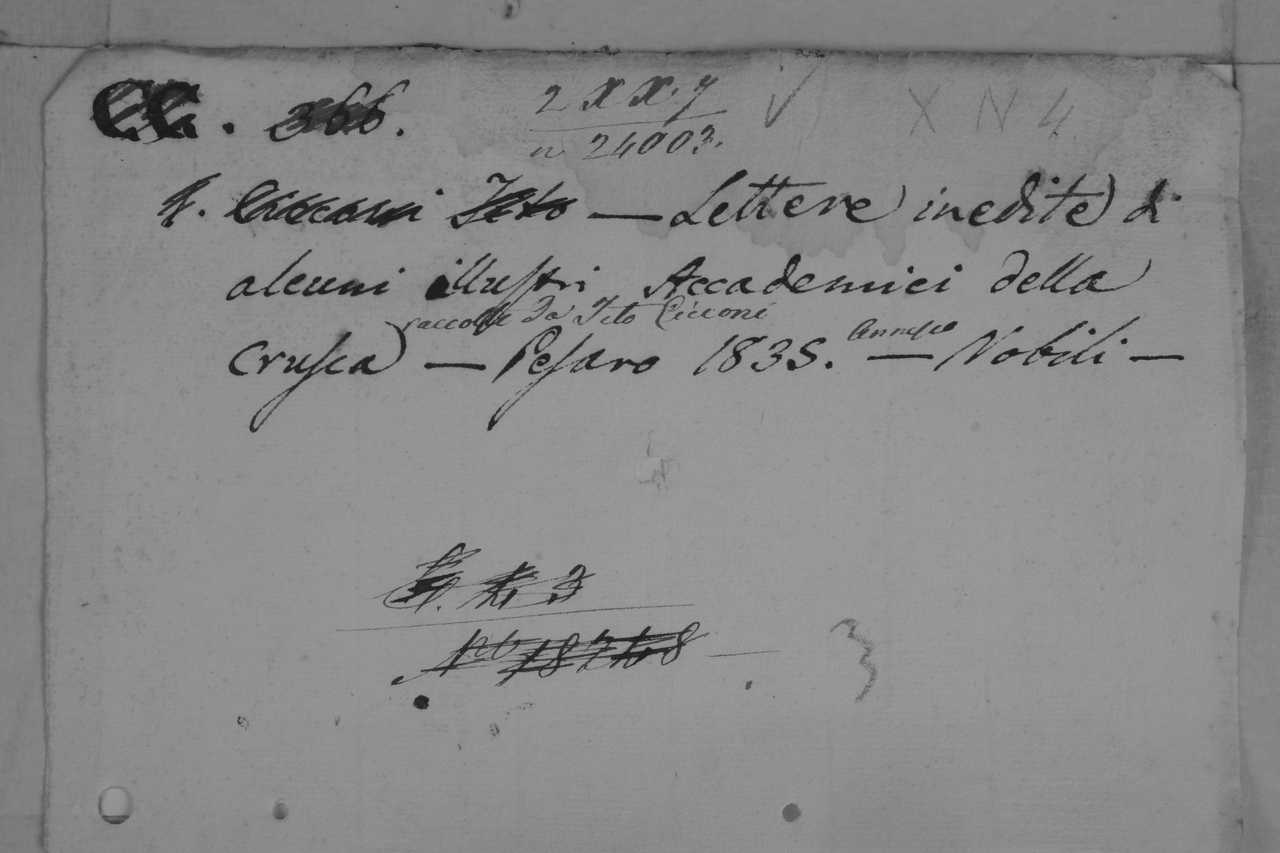 CC. 366. 2 X X. 7 X N 4
n 24003.
Ciccani Tito — Lettere inedite di
alcuni illustri Accademici della
raccolte da Tito Cicconi
Crusca — Pesaro 1835. — Annesio Nobili —
3